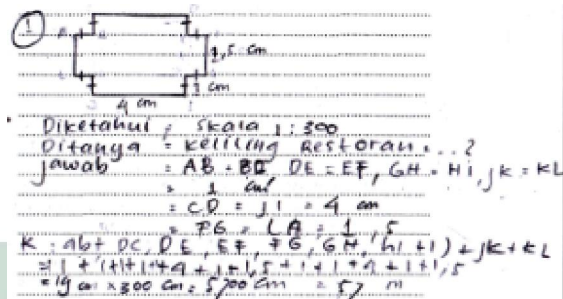 1
1,5 cm
1 cm
4 cm
Diketahui : skala 1 : 300
Ditanya = keliling Restoran...?
jawab = AB = BC, DE = EF, GH = Hi, jk = KL
= 1 cm
= CD = ji = 4 cm
= FG = LA = 1,5
K : ab + DC, DE, EF, FG, GH, hi + i) + jk + KL
= 1 + 1 + 1 + 1 + 4 + 1 + 1,5 + 1 + 1 + 4 + 1 + 1,5
= 19 cm x 300 cm = 5700 cm = 57 m